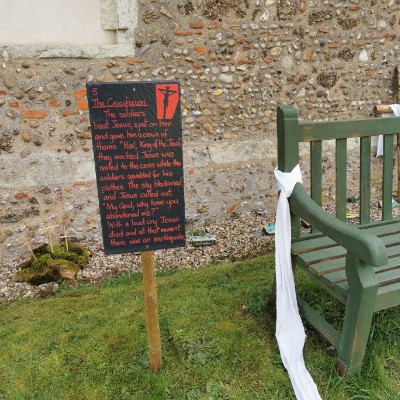 5
The Crucifixion
The soldiers
beat Jesus, spat on Him
and gave him a crown of
thorns. "Hail, King of the Jews"
they mocked. Jesus was
nailed to the cross while the
soldiers gambled for his
clothes. The sky blackened
and Jesus called out,
"My God, why have you
abandoned me?"
With a loud cry Jesus
died and at that moment
there was an earthquake